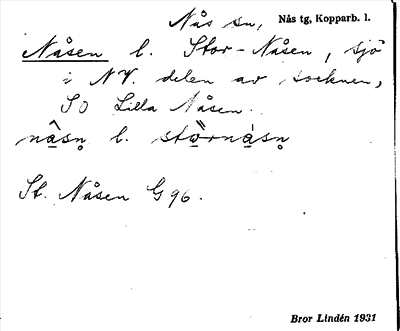 Nås sn, Nås tg, Kopparb. l.
Nåsen l. Stor-Nåsen, sjö
i NV. delen av socknen,
SO Lilla Nåsen.
l.
St. Nåsen G 96.
Bror Lindén 1931